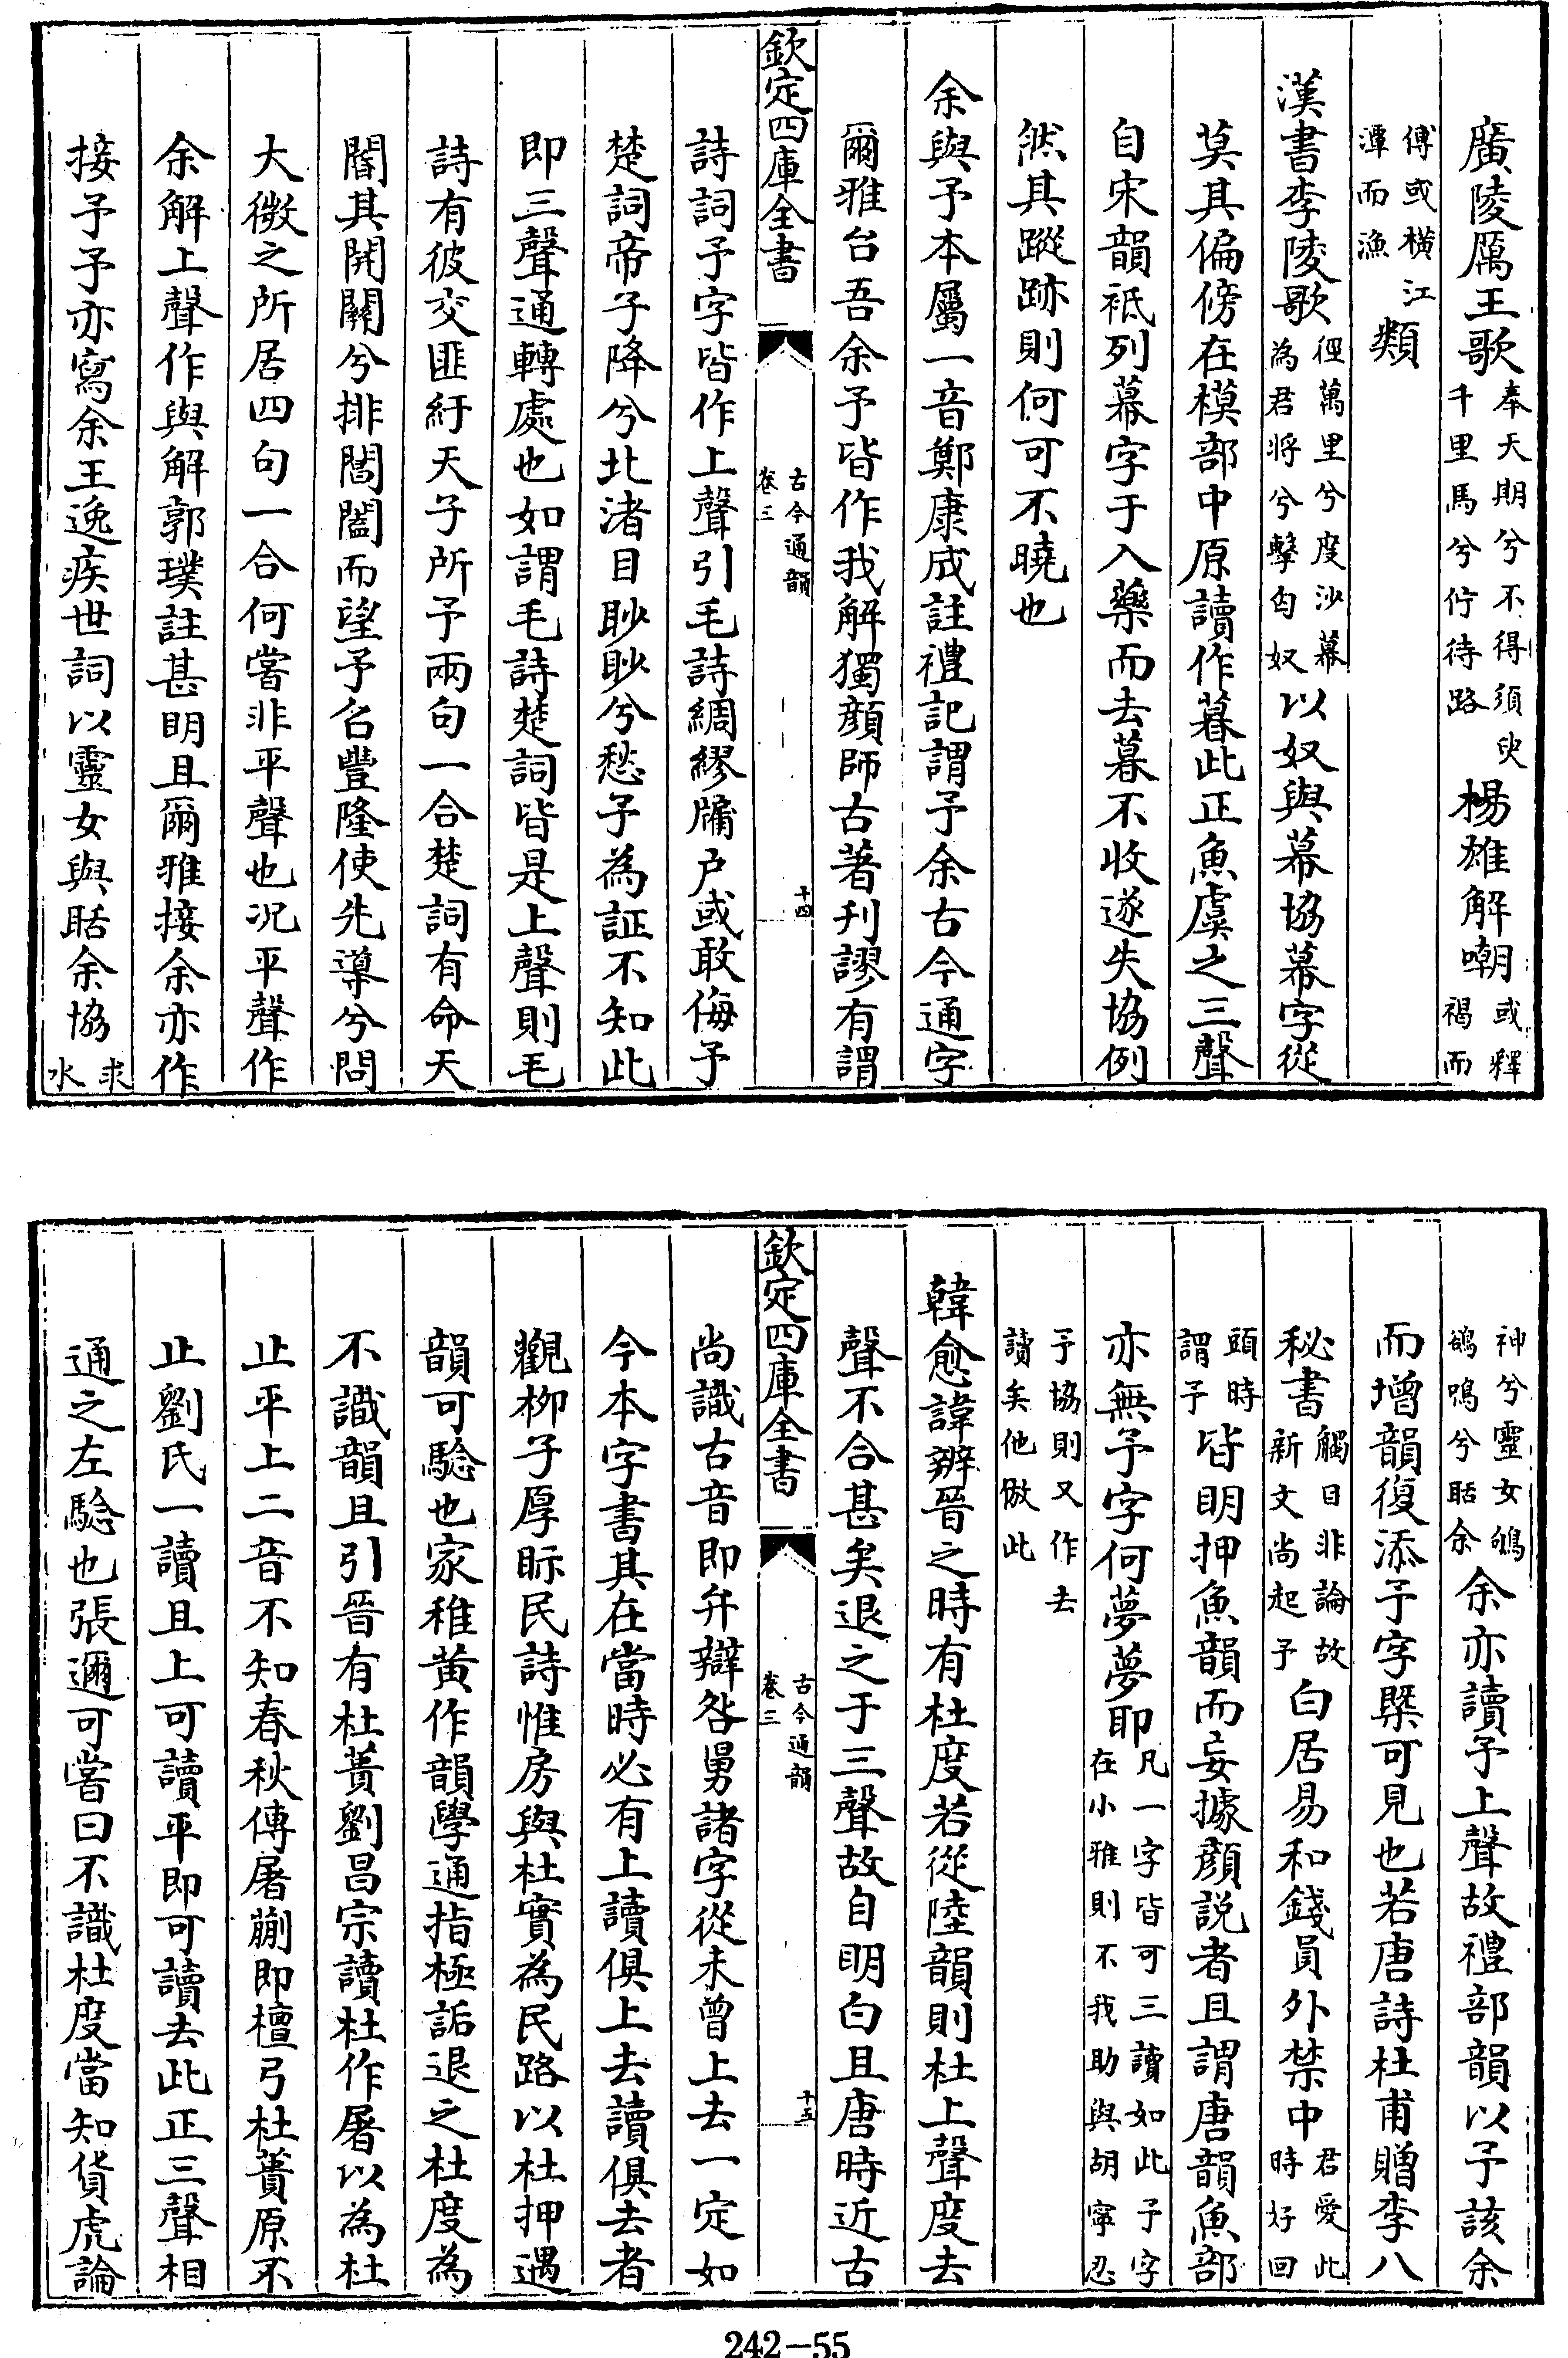 廣陵厲王歌奉天期兮不得須臾千里馬兮佇待路楊雄解嘲或釋褐而
傅或橫江潭而漁類
漢書李陵歌徑萬里兮度沙幕為君將兮擊匈奴以奴與幕協幕字從
莫其偏傍在模部中原讀作暮此正魚虞之三聲
自宋韻祇列幕字于入藥而去暮不收遂失協例
然其蹤跡則何可不曉也
余與予本屬一音鄭康成註禮記謂予余古今通字
爾雅台吾余予皆作我解獨顏師古著刋謬有謂
欽定四庫全書
古今通韻
卷三
十四
詩詞予字皆作上聲引毛詩綢繆牖户或敢侮予
楚詞帝子降兮北渚目眇眇兮愁予為証不知此
即三聲通轉處也如謂毛詩楚詞皆是上聲則毛
詩有彼交匪紓天子所予兩句一合楚詞有命天
閽其開關兮排閶闔而望予召豐隆使先導兮問
大微之所居四句一合何嘗非平聲也况平聲作
余解上聲作與解郭璞註甚明且爾雅接余亦作
接予予亦寫余王逸疾世詞以靈女與聒余協求水
神兮靈女鴝鵒鳴兮聒余余亦讀予上聲故禮部韻以予該余
而增韻復添予字槩可見也若唐詩杜甫贈李八
秘書觸目非論故新文尚起予白居易和錢員外禁中君愛此時好回
頭時謂予皆明押魚韻而妄據顏説者且謂唐韻魚部
亦無予字何夢夢耶凡一字皆可三讀如此予字在小雅則不我助與胡寧忍
予協則又作去讀矣他倣此
韓愈諱辨晉之時有杜度若從陸韻則杜上聲度去
聲不合甚矣退之于三聲故自明白且唐時近古
欽定四庫全書
古今通韻
卷三
十五
尚識古音即弁辯咎舅諸字從未曾上去一定如
今本字書其在當時必有上讀俱上去讀俱去者
觀柳子厚眎民詩惟房與杜實為民路以杜押遇
韻可驗也家稚黄作韻學通指極詬退之杜度為
不識韻且引晉有杜蕢劉昌宗讀杜作屠以為杜
止平上二音不知春秋傳屠蒯即檀弓杜蕢原不
止劉氏一讀且上可讀平即可讀去此正三聲相
通之左驗也張邇可嘗曰不識杜度當知貨虎論
242—55